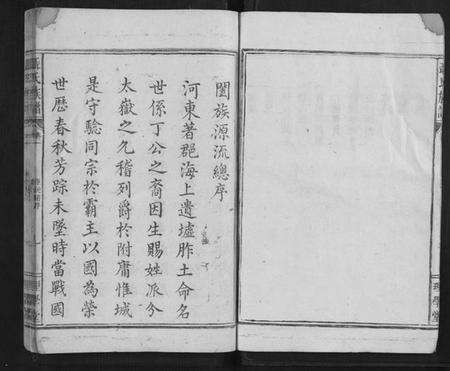 闔族源流總序
河東著郡海上遺墟胙土命名
世係丁公之裔因生賜姓派分
太嶽之九稽列爵於附庸惟城
是守騐同宗於霸主以國為榮
世歷春秋芳踪未墜時當戰國